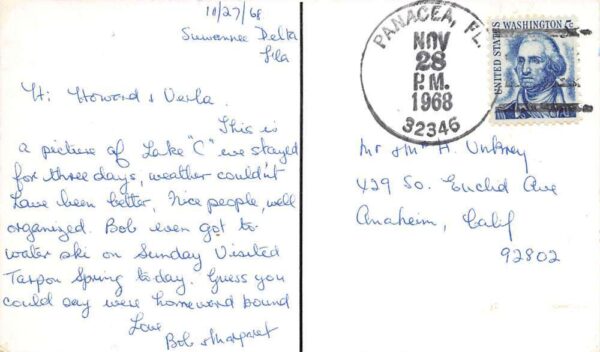 10/27/68
Suwannee Delta
Fla
Hi Howard & Verla.
This is
a picture of Lake "C" we stayed
for three days, weather couldn't
have been better. Nice people, well
organized. Bob even got to
water ski on Sunday Visited
Tarpon Spring today. Guess you
could say were homeword bound
Love
Bob & Margaret
PANACEA, FL.
NOV
28
P.M.
1968
32346
UNITED STATES
WASHINGTON 5c
Mr & Mrs H. Unkrey
429 So. Euclid Ave
Anaheim, Calif
92802